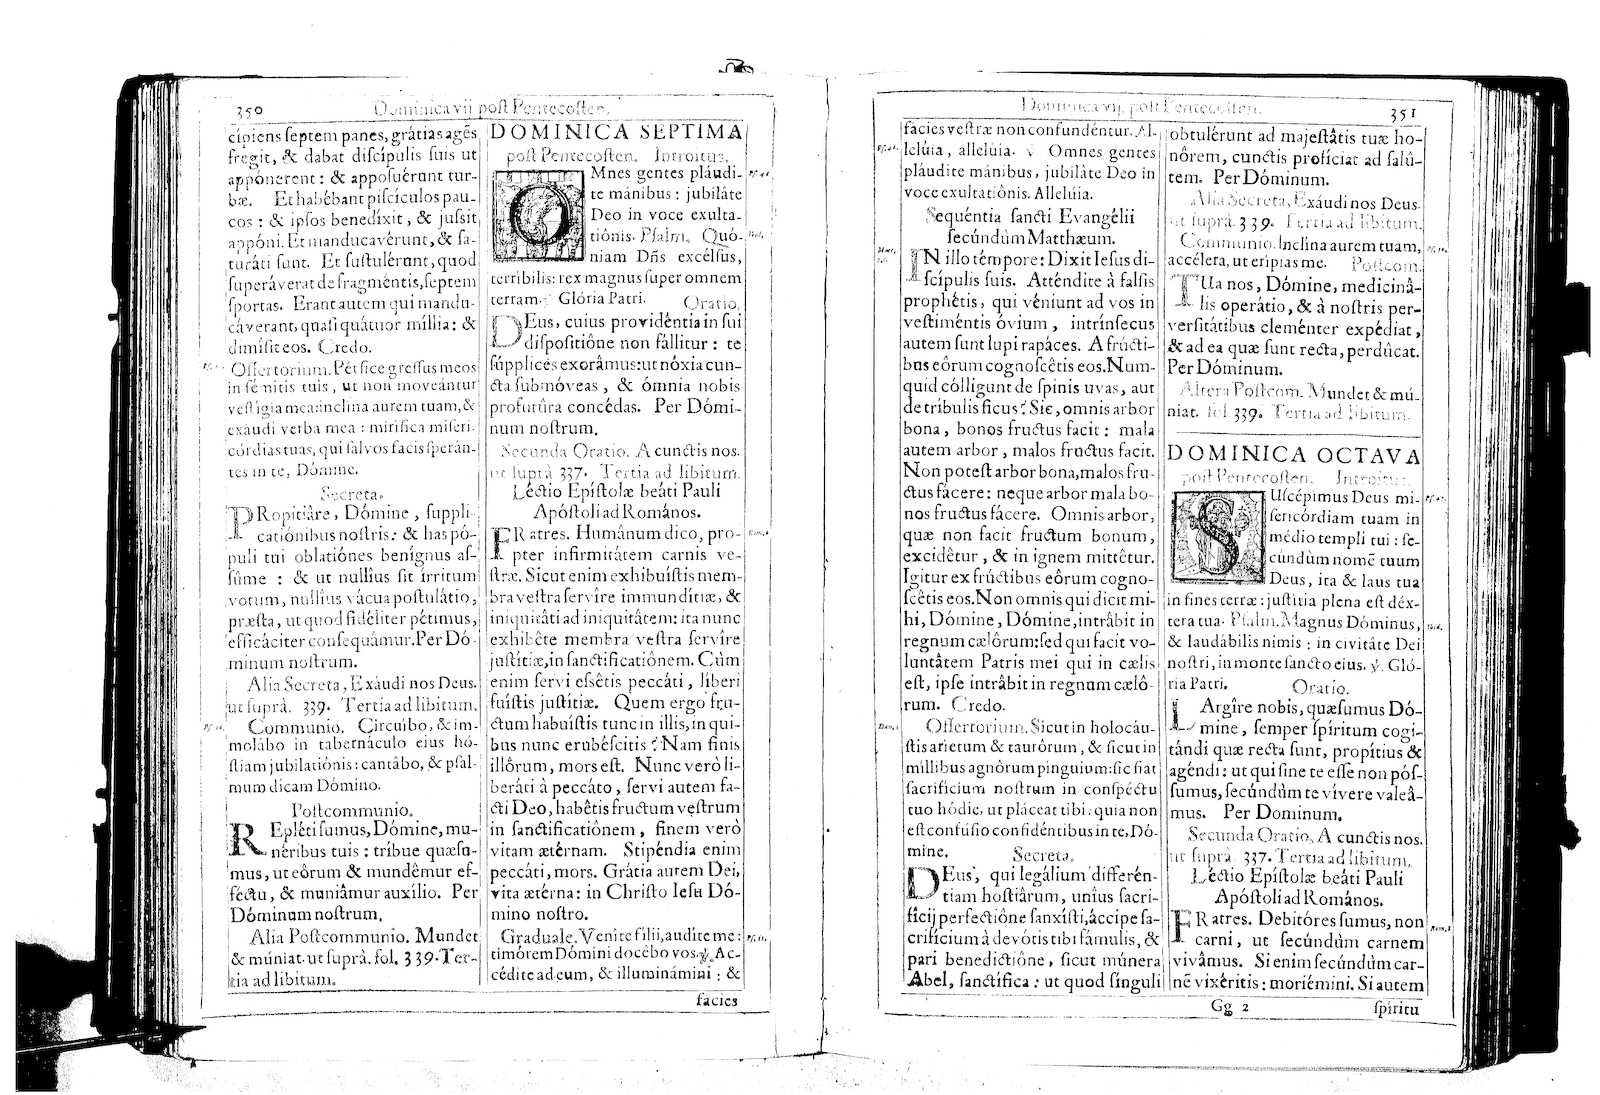 350
Dominica vij post Pentecosten.
cípiens septem panes, grátias agẽs
fregit, & dabat discípulis suis ut
appónerent : & apposuérunt tur-
bæ. Et habébant piscículos pau-
cos : & ipsos benedíxit, & jussit
appóni. Et manducavérunt, & sa-
turáti sunt. Et sustulérunt, quod
superáverat de fragméntis, septem
sportas. Erant autem qui mandu-
cáverant, quasi quátuor míllia: &
dimísit eos. Credo.
Offertorium. Pérfice gressus meos
in sémitis tuis, ut non moveántur
vestígia mea: inclína aurem tuam, &
exáudi verba mea : mirífica miseri-
córdias tuas, qui salvos facis sperán-
tes in te, Dómine.
Secreta.
PRopitiâre, Dómine, suppli-
catiónibus nostris: & has pó-
puli tui oblatiónes benígnus as-
súme : & ut nullíus sit írritum
votum, nullíus vácua postulátio,
præsta, ut quod fidéliter pétimus,
efficáciter consequámur. Per Dó-
minum nostrum.
Alia Secreta, Exáudi nos Deus.
ut suprà. 339. Tertia ad libitum.
Communio. Circuíbo, & im-
molábo in tabernáculo eius hó-
stiam jubilatiónis: cantâbo, & psal-
mum dicam Dómino.
Postcommunio.
REpléti sumus, Dómine, mu-
néribus tuis : tríbue quæsu-
mus, ut eôrum & mundêmur ef-
féctu, & muniâmur auxílio. Per
Dóminum nostrum.
Alia Postcommunio. Mundet
& múniat. ut suprà. fol. 339. Ter-
tia ad libitum.
DOMINICA SEPTIMA
post Pentecosten. Introitus.
OMnes gentes pláudi-
te mánibus : jubiláte
Deo in voce exulta-
tiónis. Psalm. Quó-
niam Dñs excélsus,
terríbilis: rex magnus super omnem
terram. Glória Patri. Oratio.
DEus, cuius providéntia in sui
dispositiône non fállitur : te
súpplices exorâmus: ut nóxia cun-
cta submóveas, & ómnia nobis
profutûra concédas. Per Dómi-
num nostrum.
Secunda Oratio. A cunctis nos.
ut suprà 337. Tertia ad libitum.
Léctio Epístolæ beáti Pauli
Apóstoli ad Romános.
FRatres. Humânum dico, pro-
pter infirmitátem carnis ve-
stræ. Sicut enim exhibuístis mem-
bra vestra servíre immundítiæ, &
iniquitâti ad iniquitâtem: ita nunc
exhibête membra vestra servíre
justítiæ, in sanctificatiônem. Cùm
enim servi essêtis peccáti, líberi
fuístis justítiæ. Quem ergo fru-
ctum habuístis tunc in illis, in qui-
bus nunc erubéscitis? Nam finis
illôrum, mors est. Nunc verò li-
beráti à peccáto, servi autem fa-
cti Deo, habêtis fructum vestrum
in sanctificatiônem, finem verò
vitam ætérnam. Stipéndia enim
peccáti, mors. Grátia autem Dei,
vita ætérna: in Christo Iesu Dó-
mino nostro.
Graduale. Veníte fílii, audíte me:
timórem Dómini docêbo vos. ℣. Ac-
cédite ad eum, & illuminámini : &
facies
Dominica vij. post Pentecosten.
351
facies vestræ non confundéntur. Al-
lelúia, alleluia. ℣. Omnes gentes
pláudite mánibus, jubiláte Deo in
voce exultatiônis. Allelúia.
Sequéntia sancti Evangélii
secúndùm Matthæum.
IN illo témpore: Dixit Iesus di-
scípulis suis. Atténdite à falsis
prophétis, qui véniunt ad vos in
vestiméntis óvium, intrínsecus
autem sunt lupi rapáces. A frúcti-
bus eôrum cognoscêtis eos. Num-
quid cólligunt de spinis uvas, aut
de tríbulis ficus? Sic, omnis arbor
bona, bonos fructus facit: mala
autem arbor, malos fructus facit.
Non potest arbor bona, malos fru-
ctus fácere: neque arbor mala bo-
nos fructus fácere. Omnis arbor,
quæ non facit fructum bonum,
excidêtur, & in ignem mittêtur.
Igitur ex frúctibus eôrum cogno-
scêtis eos. Non omnis qui dicit mi-
hi, Dómine, Dómine, intrâbit in
regnum cælôrum: sed qui facit vo-
luntâtem Patris mei qui in cælis
est, ipse intrâbit in regnum cælô-
rum. Credo.
Offertorium. Sicut in holocáu-
stis aríetum & taurórum, & sicut in
míllibus agnôrum pinguium: sic fiat
sacrifícium nostrum in conspéctu
tuo hódie, ut pláceat tibi: quia non
est confúsio confidéntibus in te, Dó-
mine. Secreta.
DEus, qui legálium differén-
tiam hostiârum, unîus sacri-
fícij perfectiône sanxísti, áccipe sa-
crifícium à devótis tibi fámulis, &
pari benedictiône, sicut múnera
Abel, sanctífica: ut quod sínguli
obtulérunt ad majestâtis tuæ ho-
nôrem, cunctis profíciat ad salû-
tem. Per Dóminum.
Alia Secreta, Exáudi nos Deus.
ut suprà. 339. Tertia ad libitum.
Communio. Inclína aurem tuam,
accélera, ut erípias me. Postcom.
TUa nos, Dómine, medicinâ-
lis operátio, & à nostris per-
versitátibus cleménter expédiat,
& ad ea quæ sunt recta, perdûcat.
Per Dóminum.
Altera Postcom. Mundet & mú-
niat. fol. 339. Tertia ad libitum.
DOMINICA OCTAVA
post Pentecosten. Introitus.
SUscépimus Deus mi-
sericórdiam tuam in
médio templi tui : se-
cúndùm nomẽ tuum
Deus, ita & laus tua
in fines terræ: justítia plena est déx-
tera tua. Psalm. Magnus Dóminus,
& laudâbilis nimis : in civitáte Dei
nostri, in monte sancto eius. ℣. Gló-
ria Patri. Oratio.
LArgíre nobis, quæsumus Dó-
mine, semper spíritum cogi-
tándi quæ recta sunt, propítius &
agéndi: ut qui sine te esse non pós-
sumus, secúndùm te vívere valeâ-
mus. Per Dominum.
Secunda Oratio, A cunctis nos.
ut suprà. 337. Tertia ad libitum.
Léctio Epístolæ beáti Pauli
Apóstoli ad Romános.
FRatres. Debitóres sumus, non
carni, ut secúndùm carnem
vivâmus. Si enim secúndùm car-
nẽ vixéritis: moriémini. Si autem
Gg 2
spíritu